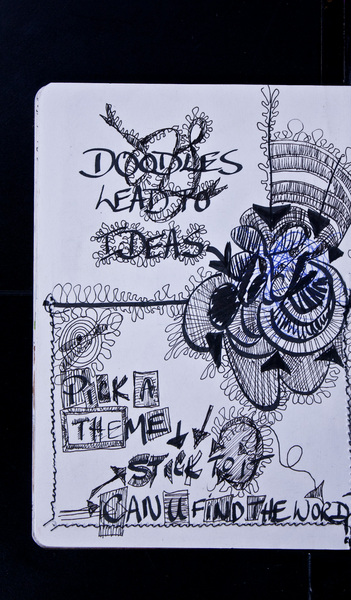 DOODLES
LEAD TO
IDEAS
PICK A
THEME
STICK TO IT
CAN U FIND THE WORD